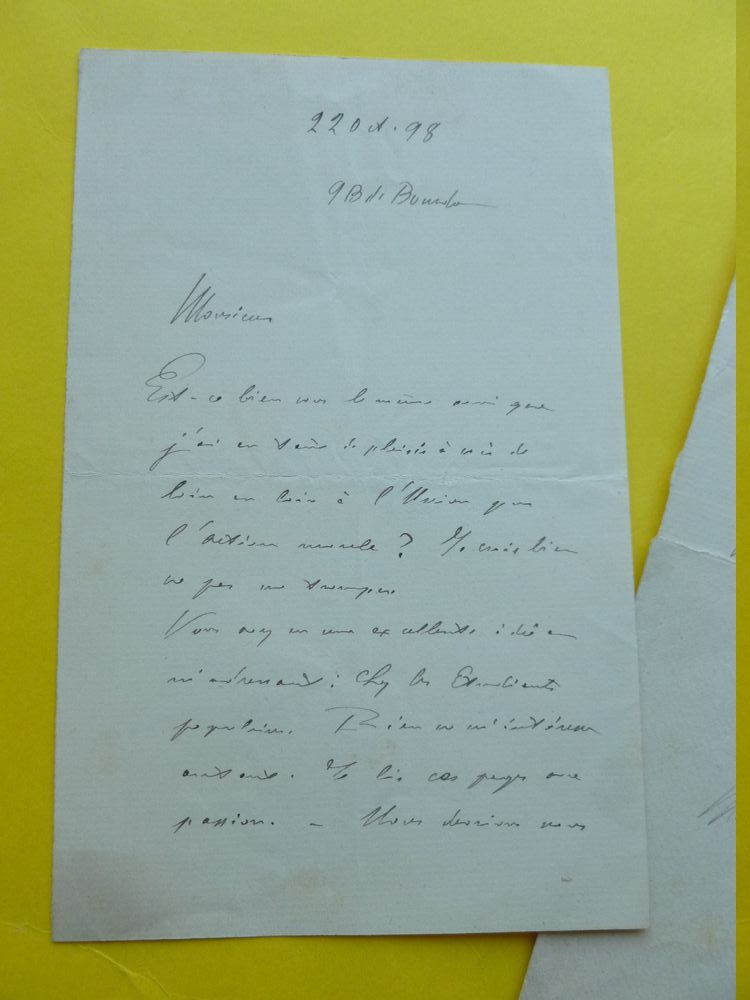 22 Oct. 98
9 Bd Bourdon
Monsieur
Est-ce bien vous le même ami que
j'ai eu tant de plaisir à voir de
loin en loin à l'Union pour
l'Action morale ? Je crois bien
ne pas me tromper.
Vous avez eu une excellente idée en
m'adressant : Chez les Étudiants
populaires. Rien ne m'intéresse
autant. Je lis ces pages avec
passion. – Nous devrions nous